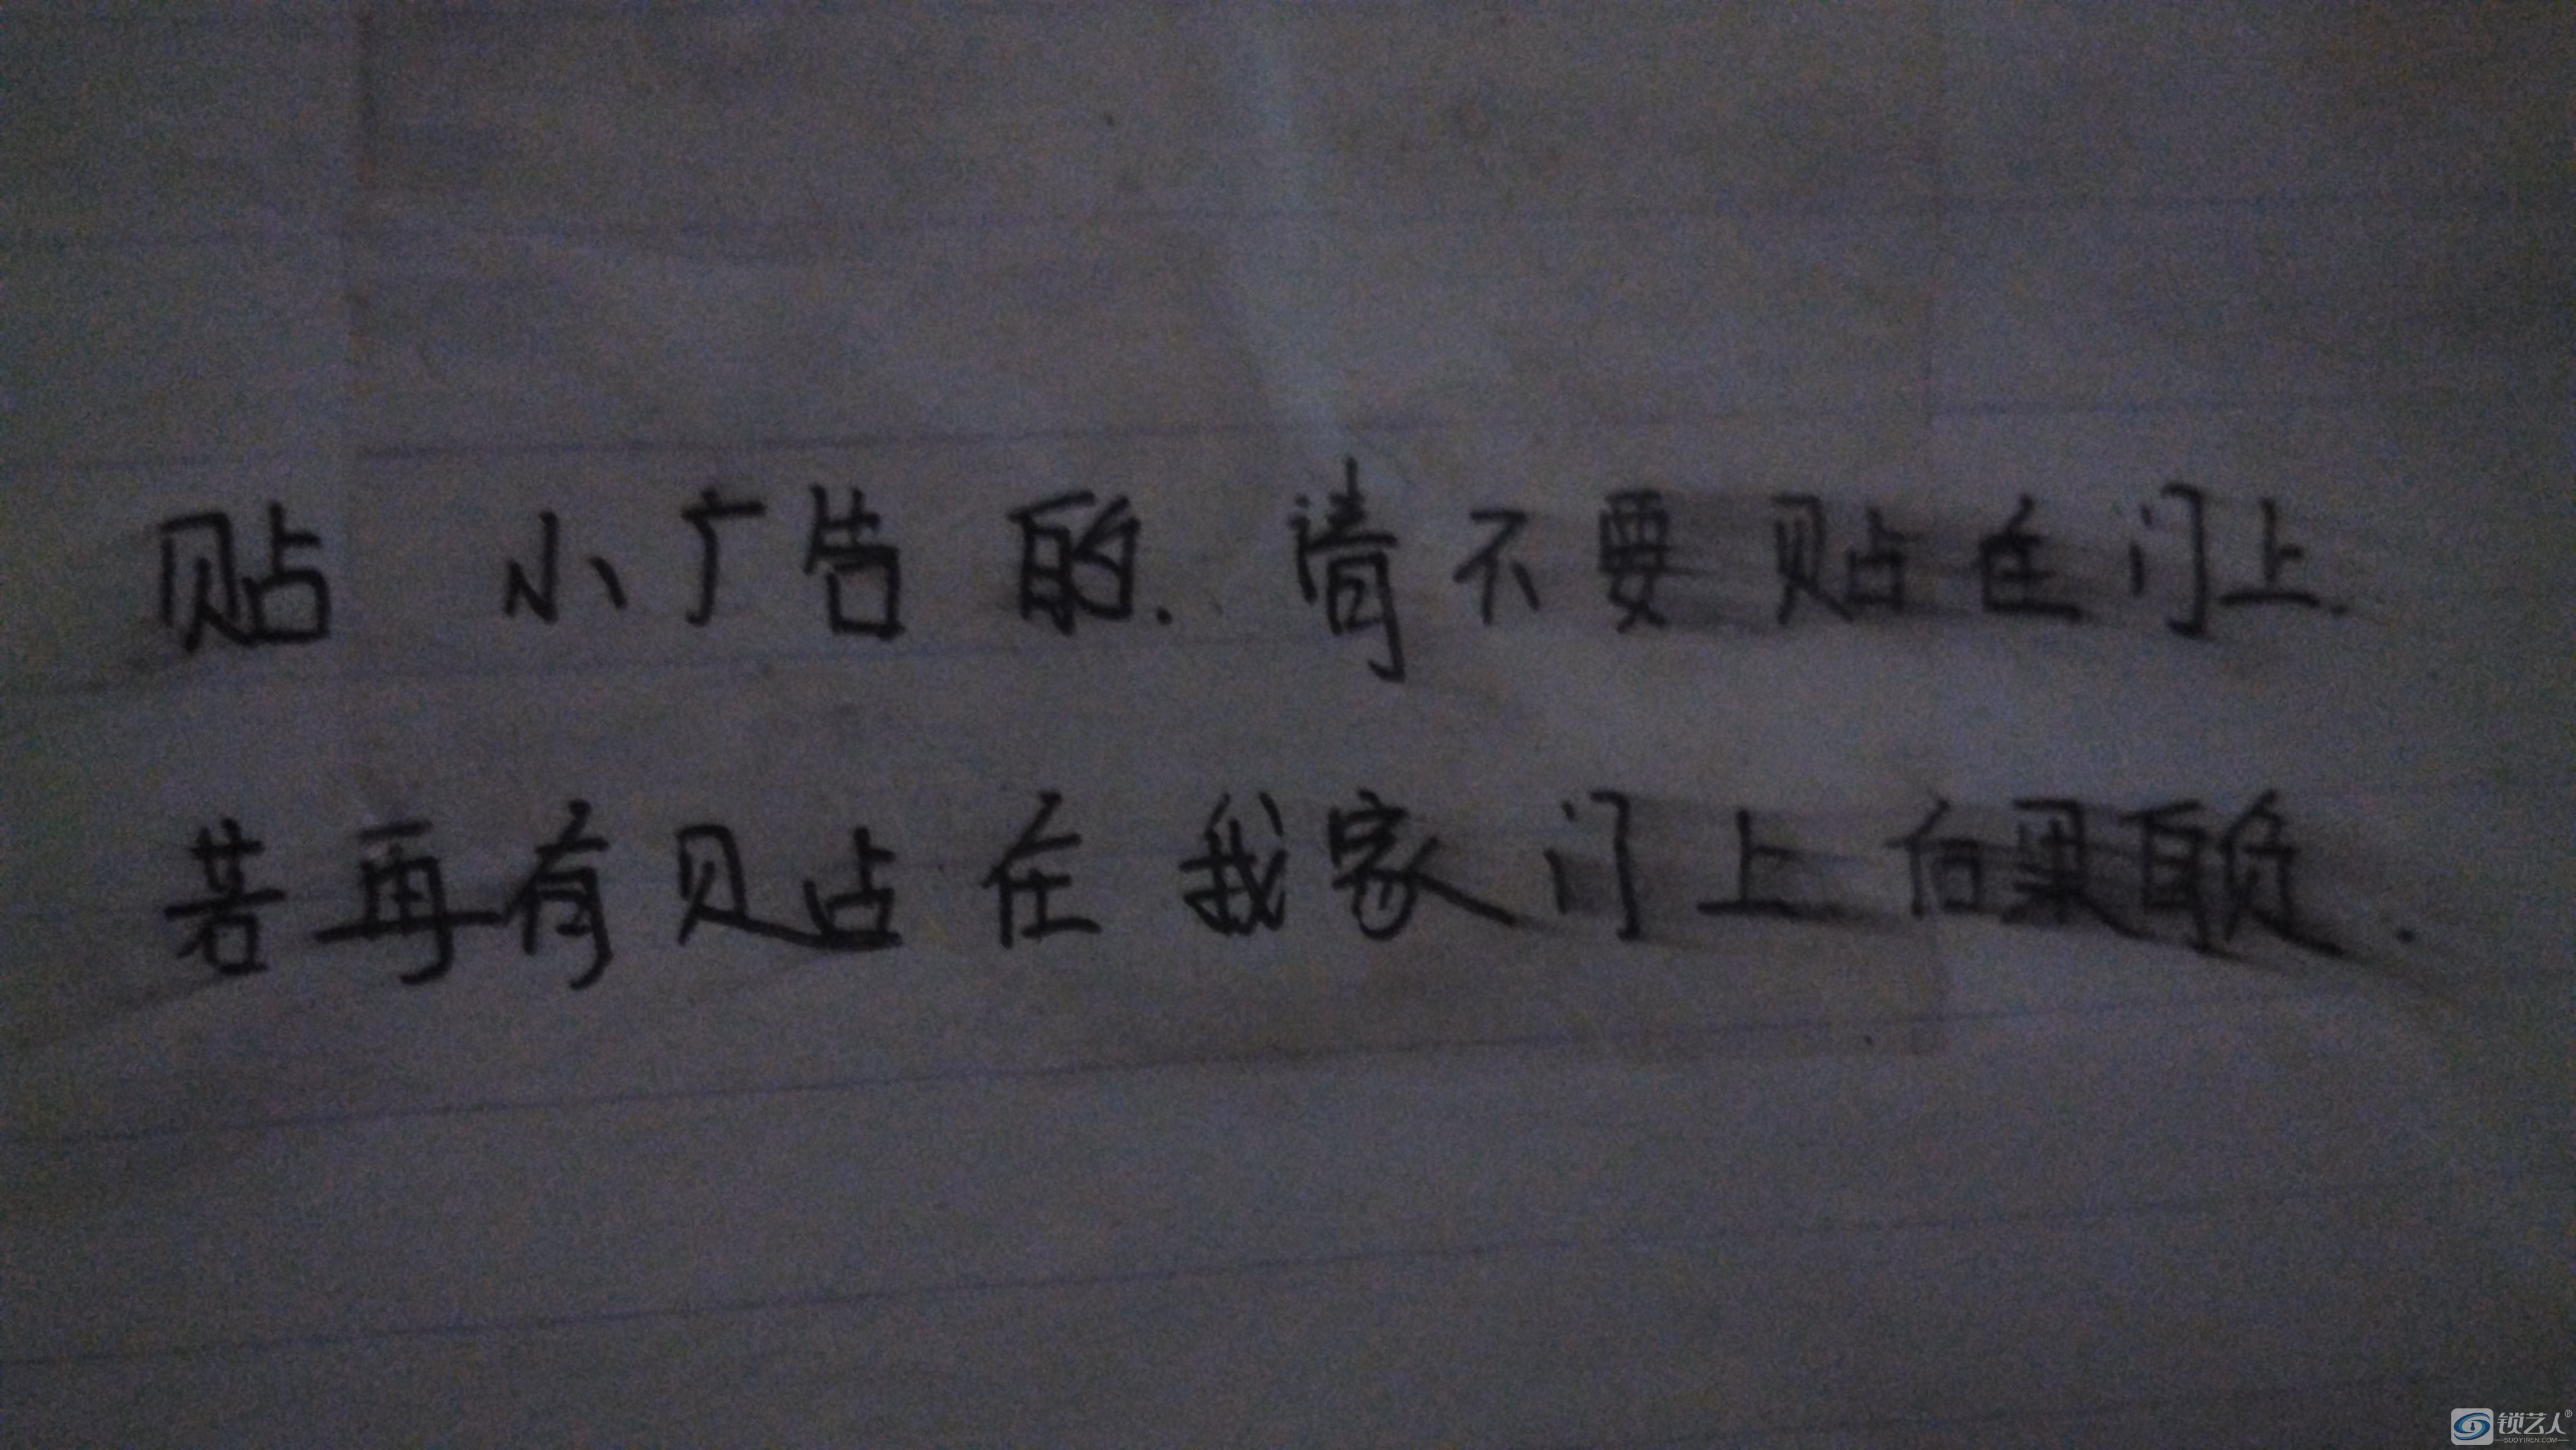 贴小广告的.请不要贴在门上.
若再有贴在我家门上后果自负.
锁艺人®
SUOYIREN.COM